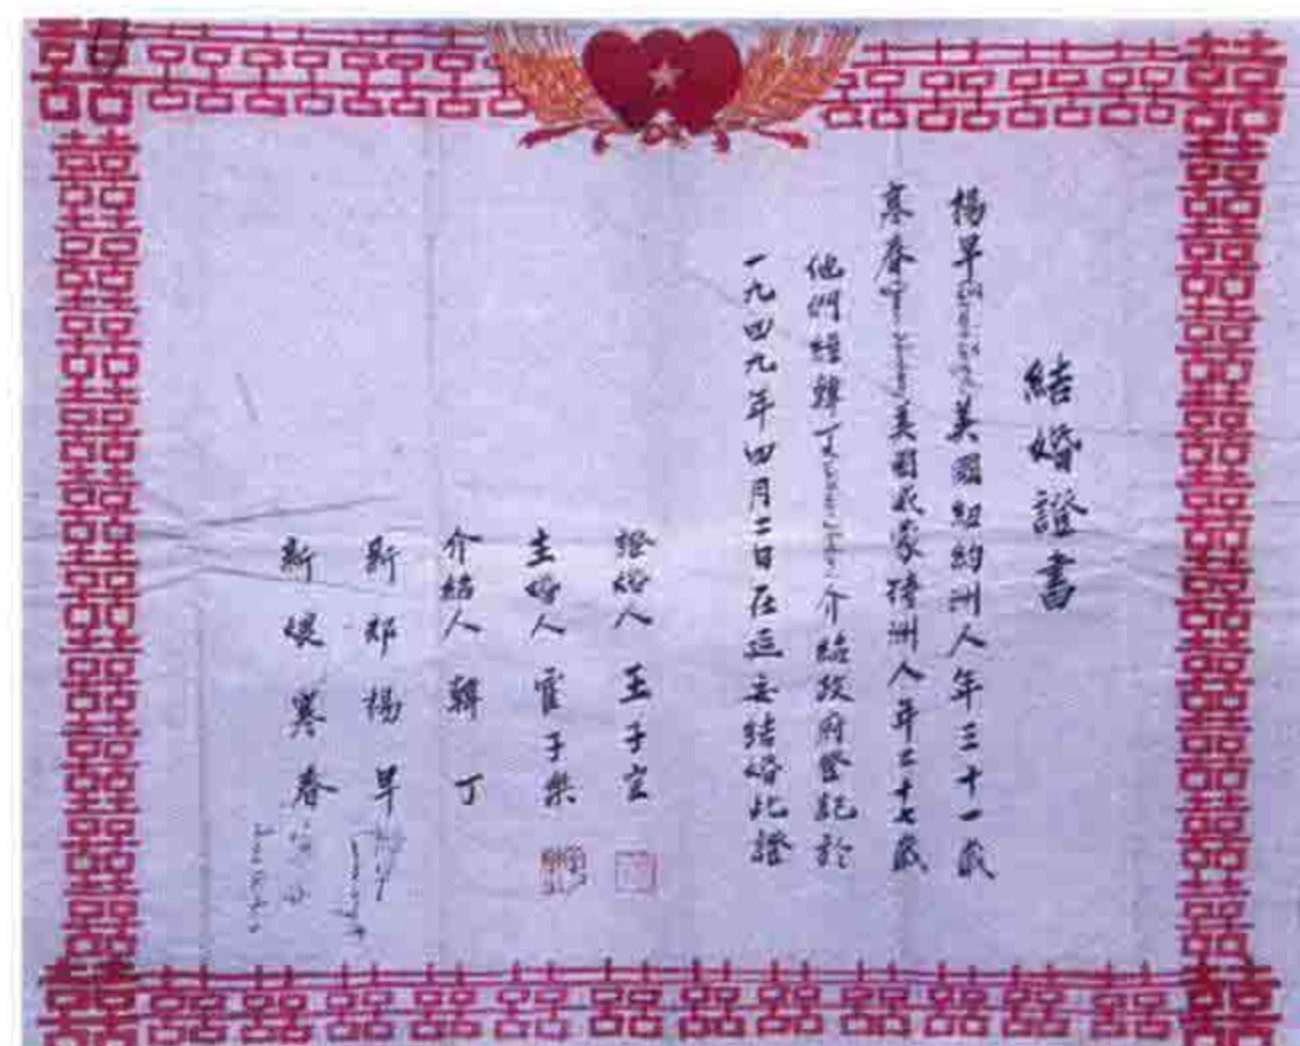 結婚證書
楊早 美國紐約洲人年三十一歲
寒春 美國 洲人年二十七歲
他們經韓丁 介紹政府登記於
一九四九年四月二日在延安結婚此證
證婚人 王子宜
主婚人 霍子樂
介紹人 韓丁
新郎 楊早
新娘 寒春